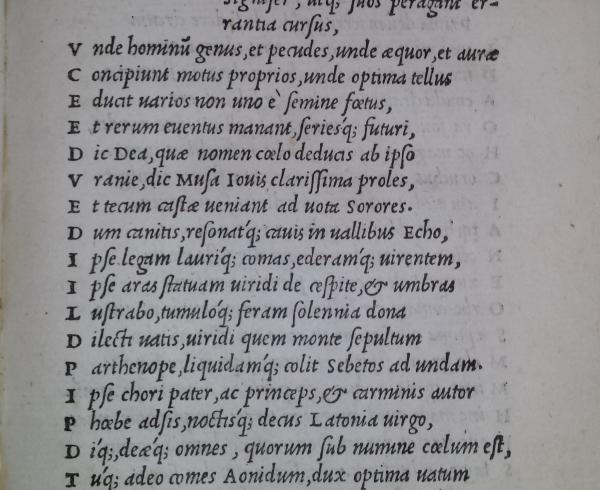 signifer, utq; suos peragant er-
rantia cursus,
V nde hominũ genus, et pecudes, unde æquor, et auræ
C oncipiunt motus proprios, unde optima tellus
E ducit uarios non uno è semine fœtus,
E t rerum euentus manant, seriesq́; futuri,
D ic Dea, quæ nomen cœlo deducis ab ipso
V ranie, dic Musa Iouis clarissima proles,
E t tecum castæ ueniant ad uota Sorores.
D um canitis, resonatq́; cauis in uallibus Echo,
I pse legam lauriq́; comas, ederamq́; uirentem,
I pse aras statuam uiridi de cespite, & umbras
L ustrabo, tumuloq́; feram solennia dona
D ilecti uatis, uiridi quem monte sepultum
P arthenope, liquidamq́; colit Sebetos ad undam.
I pse chori pater, ac princeps, & carminis autor
P hœbe adsis, noctisq́; decus Latonia uirgo,
D iq́;, deæq́; omnes, quorum sub numine cœlum est,
T uq́; adeo comes Aonidum, dux optima uatum